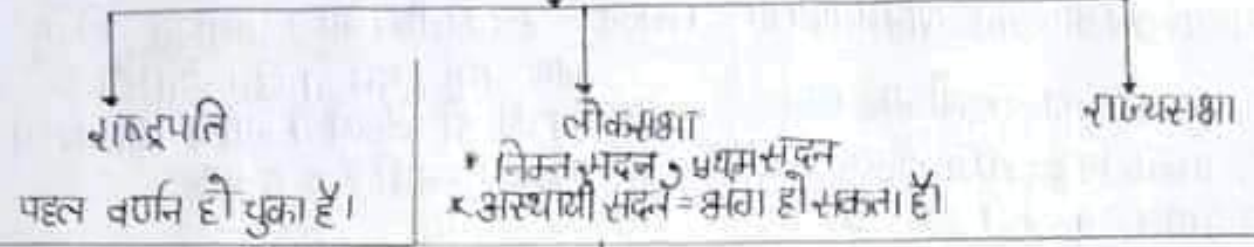 राष्ट्रपति
पहल वर्णन हो चुका है।
लोकसभा
* निम्न सदन, प्रथम सदन
* अस्थायी सदन = भंग हो सकता है।
राज्यसभा